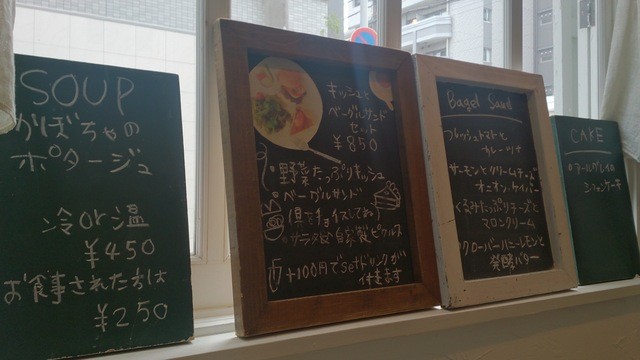 SOUP
かぼちゃの
ポタージュ
冷or温
¥450
お食事された方は
¥250
キッシュと
ベーグルサンド
セット
¥850
・野菜たっぷりキッシュ
・ベーグルサンド
チョイスしてね
・サラダと自家製ピクルス
+100円でsetドリンクが
付きます
Bagel Sand
フレッシュトマトと
サーモンとクリームチーズ
オニオン、ケイパー
くるみたっぷりチーズと
マロンクリーム
クローバーハニーレモンと
発酵バター
CAKE
・アールグレイの
シフォンケーキ